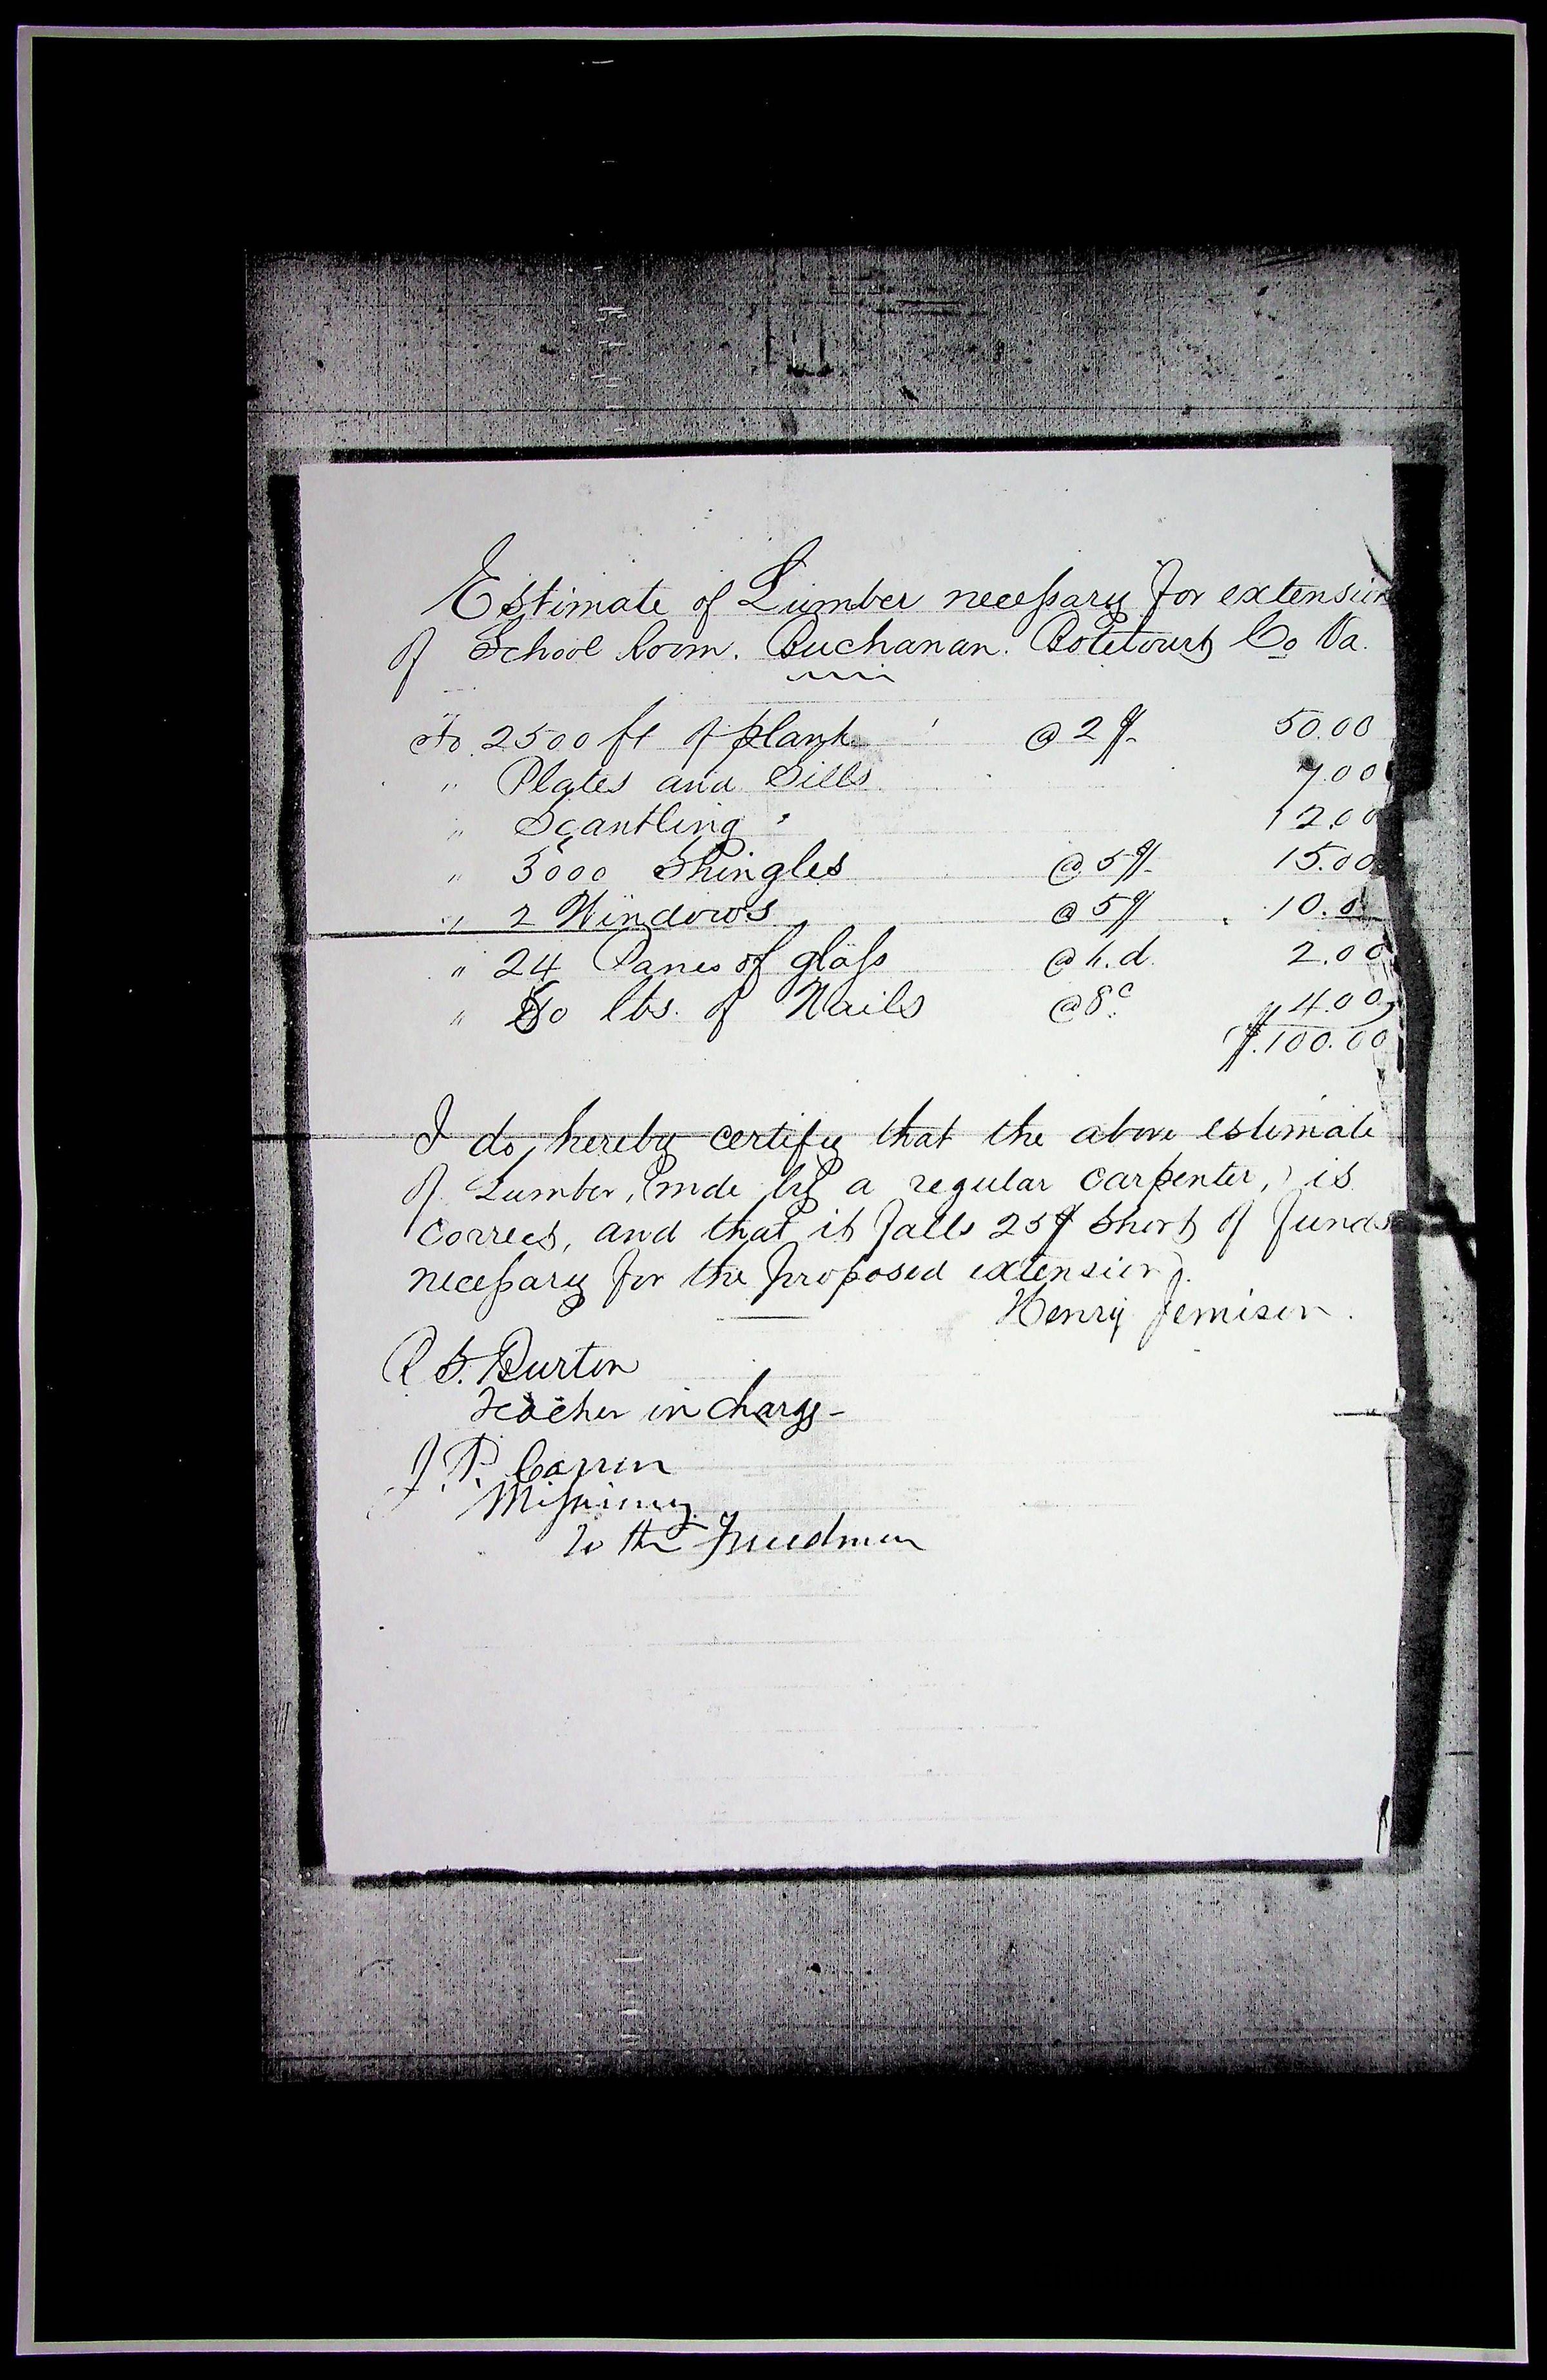 Estimate of Lumber necessary for extension
of School Room. Buchanan. Botetourt Co Va.
To 2500 ft of plank @ 2$ 50.00
" Plates and Sills 7.00
" Scantling 12.00
" 3000 Shingles @ 5$ 15.00
" 2 Windows @ 5$ 10.0
" 24 Panes of glass @ h.d. 2.00
" 50 lbs. of Nails @ 8c. 4.00
$.100.00
I do hereby certify that the above estimate
of Lumber, (mde by a regular carpenter,) is
correct, and that it falls 25$ short of funds
necessary for the proposed extension.
Henry Jemison.
R S. Burton
Teacher in charge-
J. P. 
Missionary
to the Freedmen